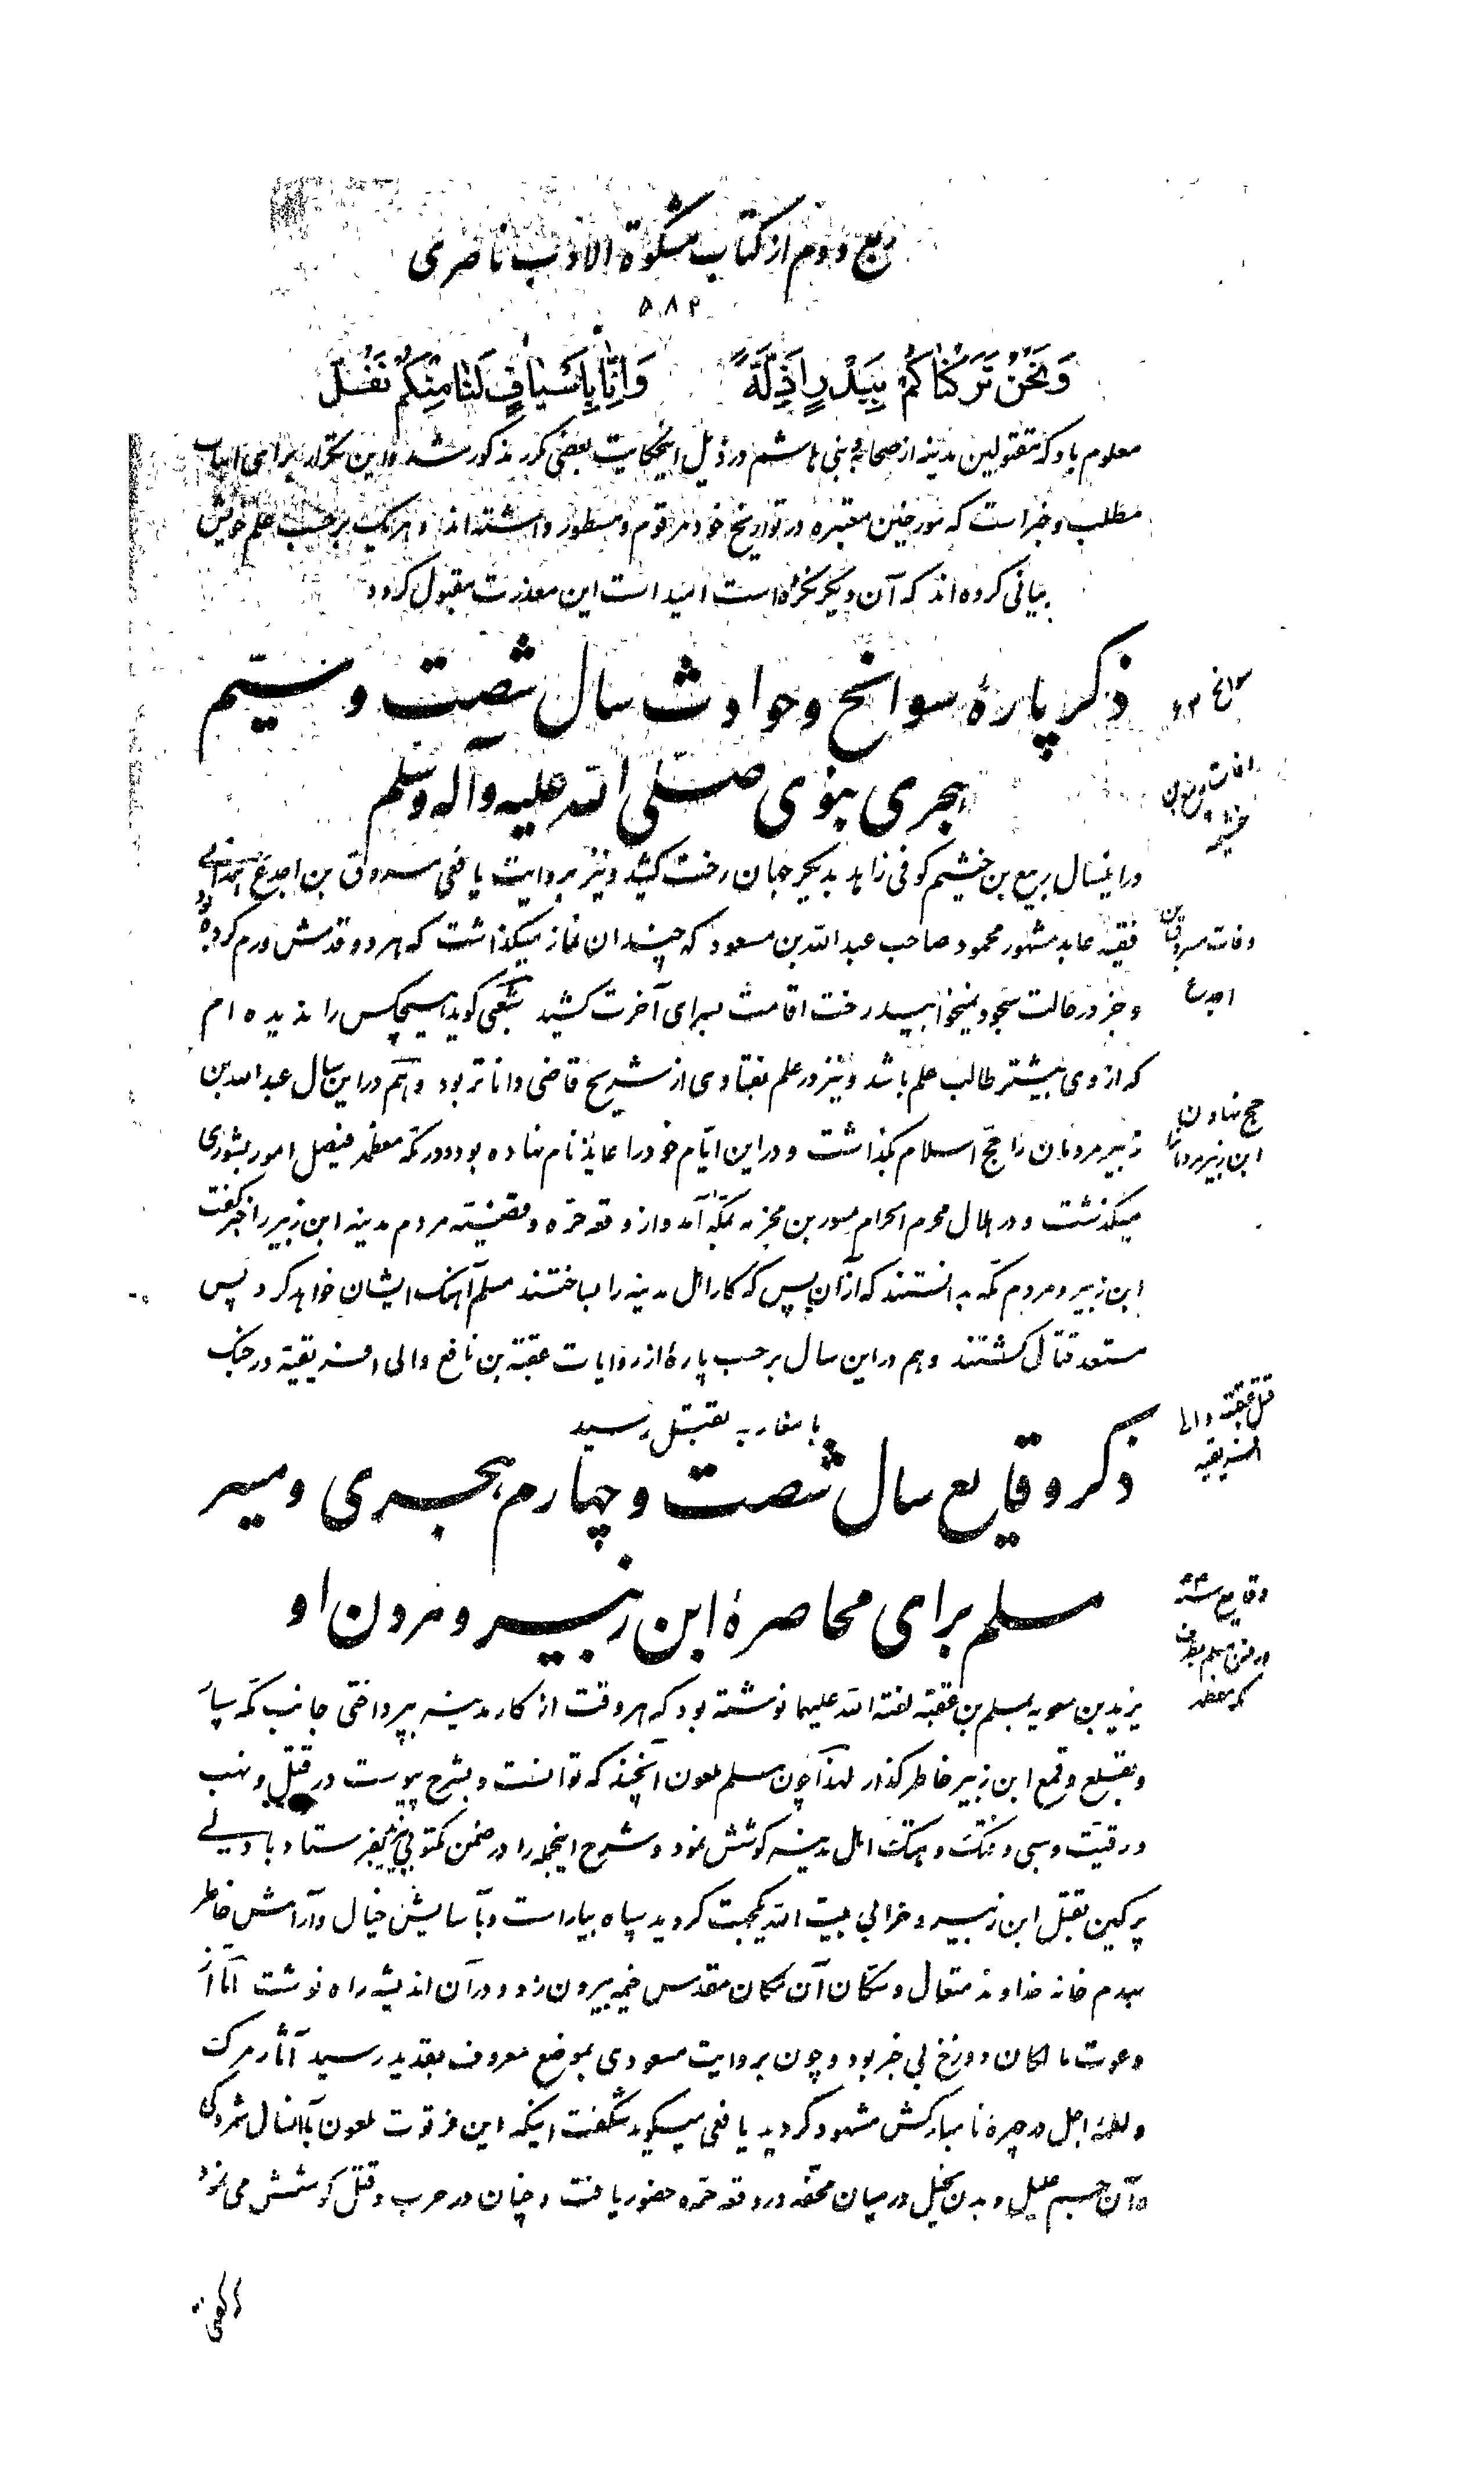 ربع دوم از کتاب مشکوة الادب ناصری
۵۸۲
وَنَحْنُ تَرَکْنَاکُمْ بِبَدْرٍ اَذِلَّةً وَاِنَّا بِاَسْیَافٍ لَنَا مِنْکُمْ نَفُلّ
معلوم باد که مقتولین مدینه از صحابه و بنی هاشم در ذیل اینحکایت بعضی مکرر مذکور شد و این تکرار برای اثبات
مطلب و خبر است که مورخین معتبره در تواریخ خود مرقوم و مسطور داشته اند و هر یک بر حسب علم خویش
بیانی کرده اند که آن دیگر نکرده است امید است این معذرت مقبول گردد
ذکر پارۀ سوانح و حوادث سال شصت و سیّم
سوانح ۶۳
هجری نبوی صلّی الله علیه وآله وسلم
وفات ربیع بن
خثیم
در اینسال ربیع بن خثیم کوفی زاهد بدیگر جهان رخت کشید و نیز بروایت یافعی مسروق بن اجدع همدانی
فقیه عابد مشهور محمود صاحب عبدالله بن مسعود که چندان نماز میگذاشت که هر دو قدمش ورم کرده بود
وفات مسروق بن
اجدع
و جز در حالت سجود نمیخوابید رخت اقامت بسرای آخرت کشید شعبی گوید هیچکس را ندیده ام
که از وی بیشتر طالب علم باشد و نیز در علم بفتاوی از شریح قاضی داناتر بود و هم در این سال عبدالله بن
حج نهادن
ابن زبیر مردمانرا
زبیر مردمان را حجّ اسلام بگذاشت و در این ایّام خود را عایذ نام نهاده بود و در مکّه معظمه فیصل امور بشوری
میگذشت و در هلال محرم الحرام مسور بن مخرمه بمکّه آمد و از وقعه حرّه و قضیّه مردم مدینه ابن زبیر را خبر گفت
ابن زبیر و مردم مکّه بدانستند که از آن پس که کار اهل مدینه را بساختند مسلم آهنک ایشان خواهد کرد پس
مستعد قتال گشتند و هم در این سال بر حسب پارۀ از روایات عقبة بن نافع والی افریقیّه در جنک
با مغاربه بقتل رسید
قتل عقبه والی
افریقیه
ذکر وقایع سال شصت و چهارم هجری و مسیر
مسلم برای محاصرۀ ابن زبیر و مردن او
وقایع سنه ۶۴
در رفتن مسلم بطرف
مکه معظمه
یزید بن معویه بمسلم بن عقبه لعنة الله علیهما نوشته بود که هر وقت از کار مدینه بپرداختی جانب مکّه سپار
و بقلع و قمع ابن زبیر خاطر گذار لهذا چون مسلم ملعون آنچند که توانست و بشرح پیوست در قتل و نهب
و رقیّت و سبی و فتک و هتک اهل مدینه کوشش نمود و شرح اینجمله را در ضمن مکتوبی بیزید بفرستاد با دلی
پر کین بقتل ابن زبیر و خرابی بیت الله یکجهت گردید سپاه بیاراست و بآسایش خیال و آرامش خاطر
بهدم خانه خداوند متعال و سکّان آن مکان مقدس خیمه بیرون زد و در آن اندیشه راه نوشت امّا از
دعوت مالکان دوزخ بی خبر بود و چون بروایت مسعودی بموضع معروف بقدید رسید آثار مرک
و لطمۀ اجل در چهرۀ نامبارکش مشهود گردید یافعی میگوید شگفت اینکه این فرتوت ملعون با آنسال خوردگی
و آن جسم علیل و بدن نحیل در میان محفّه در وقعه حرّه حضور یافت و چنان در حرب و قتل کوشش می نمود